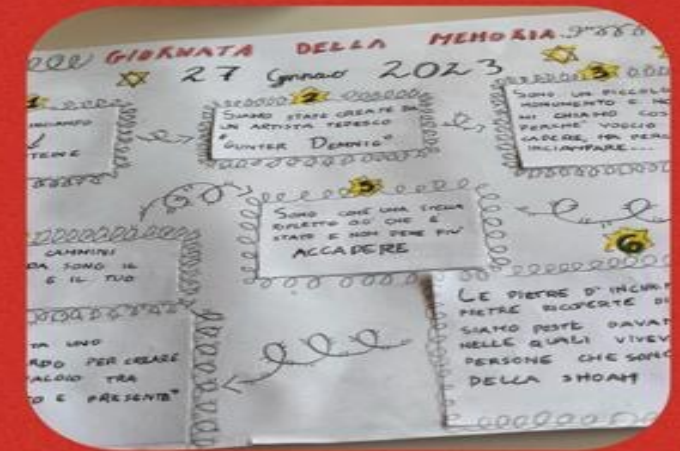 GIORNATA DELLA MEMORIA
27 Gennaio 2023
1
INCIAMPO
2
SIAMO STATE CREATE DA
UN ARTISTA TEDESCO
"GUNTER DEMNIG"
3
SONO UN PICCOLO
MONUMENTO E
MI CHIAMO COSÌ
PERCHÉ VOGLIO
CADERE, MA
INCIAMPARE...
5
SONO COME UNA STELLA
RIFLETTO CIÒ CHE È
STATO E NON DEVE PIÙ
ACCADERE
CAMMINI
SONO IL
E IL TUO
6
LE PIETRE D'INCIAM
PIETRE RICOPERTE DI
SIAMO POSTE DAVAN
NELLE QUALI VIVEV
PERSONE CHE SONO
DELLA SHOAH
UNO
PER CREARE
TRA
E PRESENTE"